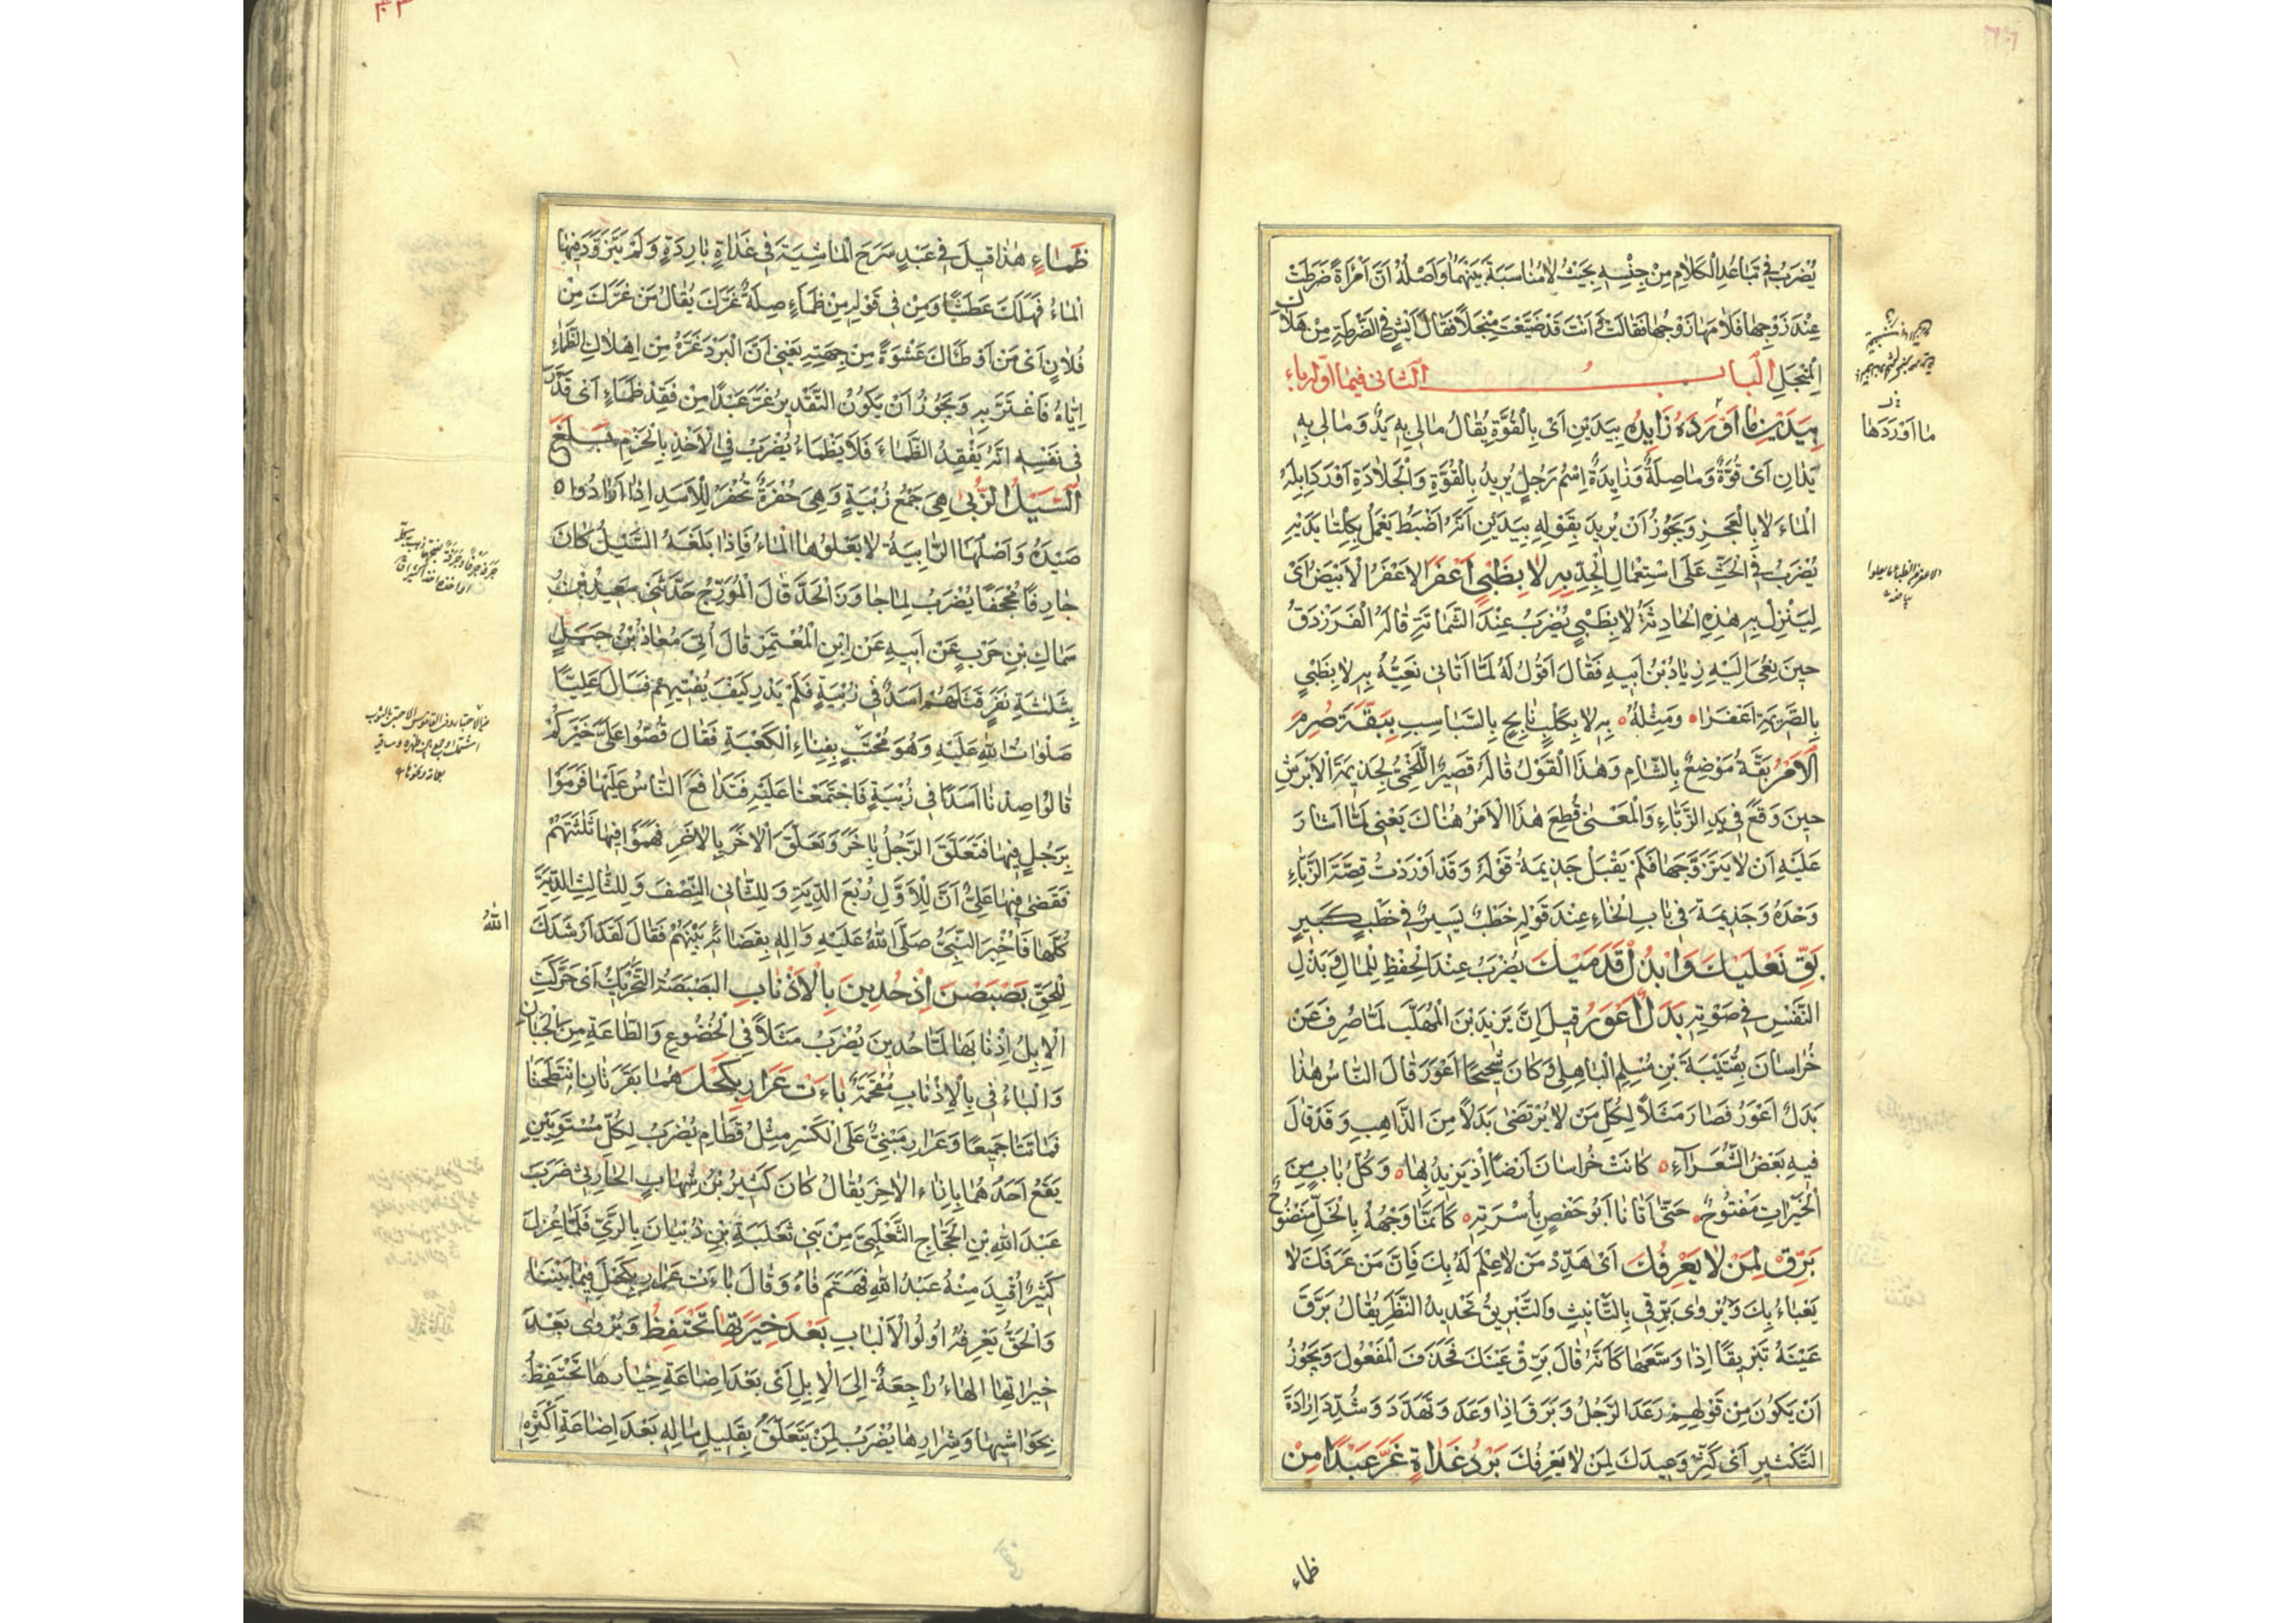 يُضْرَبُ فِي تَبَاعُدِ الْكَلَامِ مِنْ جِنْسِهِ بِحَيْثُ لَا مُنَاسَبَةَ بَيْنَهُمَا وَاَصْلُهُ اَنَّ امْرَاَةً ضَرَطَتْ
عِنْدَ زَوْجِهَا فَلَامَهَا زَوْجُهَا فَقَالَتْ اَنْتَ قَدْ ضَيَّعْتَ مِنْجَلًا فَقَالَ اَيْشٍ فِي الضَّرْطَةِ مِنْ هَلَاكِ
الْمِنْجَلِ الباب الثاني فيما اوّله باء
بِيَدَيْنِ مَا اَوْرَدَهَ زَايِدَه بِيَدَيْنِ اَيْ بِالْقُوَّةِ يُقَالُ مَالِي بِهِ يَدٌ وَمَالِي بِهِ
يَدَانِ اَيْ قُوَّةٌ وَمَا صِلَةٌ وَزَايِدَةُ اِسْمُ رَجُلٍ يُرِيدُ بِالْقُوَّةِ وَالْجَلَادَةِ اَوْرَدَ اِبِلَهُ
الْمَاءَ لَا بِالْعَجْزِ وَيَجُوزُ اَنْ يُرِيدَ بِقَوْلِهِ بِيَدَيْنِ اَنَّهُ اَضْبَطُ يَعْمَلُ بِكِلْتَا يَدَيْهِ
يُضْرَبُ فِي الْحَثِّ عَلَى اسْتِعْمَالِ الْجِدِّ بِهِ لَا بِظَبْيٍ اَعْفَرَ الْاَعْفَرُ الْاَبْيَضُ اَيْ
لِيَنْزِلْ بِهِ هٰذِهِ الْحَادِثَةُ لَا بِظَبْيٍ يُضْرَبُ عِنْدَ الشَّمَاتَةِ قَالَهُ الْفَرَزْدَقُ
حِينَ نُعِيَ اِلَيْهِ زِيَادُ بْنُ اَبِيهِ فَقَالَ اَقُولُ لَهُ لَمَّا اَتَانِي نَعِيُّهُ بِهِ لَا بِظَبْيٍ
بِالصَّرِيمَةِ اَعْفَرَا وَمِثْلُهُ بِهِ لَا بِكَلْبٍ نَابِحٍ بِالسَّبَاسِبِ بِبَقَّةَ صُرِمَ
الْاَمْرُ بَقَّةُ مَوْضِعٌ بِالشَّامِ وَهٰذَا الْقَوْلُ قَالَهُ قَصِيرٌ اللَّخْمِيُّ لِجَذِيمَةَ الْاَبْرَشِ
حِينَ وَقَعَ فِي يَدِ الزَّبَّاءِ وَالْمَعْنَى قُطِعَ هٰذَا الْاَمْرُ هُنَاكَ يَعْنِي لَمَّا اَشَارَ
عَلَيْهِ اَنْ لَا يَتَزَوَّجَهَا فَلَمْ يَقْبَلْ جَذِيمَةُ قَوْلَهُ وَقَدْ اَوْرَدْتُ قِصَّةَ الزَّبَّاءِ
وَحْدَهُ وَجَذِيمَةَ فِي بَابِ الْخَاءِ عِنْدَ قَوْلِهِ خَطْبٌ يَسِيرٌ فِي خَطْبٍ كَبِيرٍ
بَقِّ نَعْلَيْكَ وَابْذُلْ قَدَمَيْكَ يُضْرَبُ عِنْدَ الْحِفْظِ لِلْمَالِ وَبَذْلِ
النَّفْسِ فِي صَوْنِهِ بَدَلٌ اَعْوَرُ قِيلَ اِنَّ يَزِيدَ بْنَ الْمُهَلَّبِ لَمَّا صُرِفَ عَنْ
خُرَاسَانَ بِقُتَيْبَةَ بْنِ مُسْلِمٍ الْبَاهِلِيِّ وَكَانَ شَحِيحًا اَعْوَرَ قَالَ النَّاسُ هٰذَا
بَدَلٌ اَعْوَرُ فَصَارَ مَثَلًا لِكُلِّ مَنْ لَا يُرْتَضَى بَدَلًا مِنَ الذَّاهِبِ وَقَدْ قَالَ
فِيهِ بَعْضُ الشُّعَرَاءِ كَانَتْ خُرَاسَانُ اَرْضًا اِذْ يَزِيدُ بِهَا وَكُلُّ بَابٍ مِنَ
الْخَيْرَاتِ مَفْتُوحٌ حَتَّى اَتَانَا اَبُو حَفْصٍ بِاُسْرَتِهِ كَاَنَّمَا وَجْهُهُ بِالْخَلِّ مَنْضُوحٌ
بَرِّقْ لِمَنْ لَا يَعْرِفُكَ اَيْ هَدِّدْ مَنْ لَا عِلْمَ لَهُ بِكَ فَاِنَّ مَنْ عَرَفَكَ لَا
يَعْبَاءُ بِكَ وَيُرْوٰى بَرِّقِي بِالتَّاْنِيثِ وَالتَّبْرِيقُ تَحْدِيدُ النَّظَرِ يُقَالُ بَرَّقَ
عَيْنَهُ تَبْرِيقًا اِذَا وَسَّعَهَا كَاَنَّهُ قَالَ بَرِّقْ عَيْنَكَ فَحَذَفَ الْمَفْعُولَ وَيَجُوزُ
اَنْ يَكُونَ مِنْ قَوْلِهِمْ رَعَدَ الرَّجُلُ وَبَرَقَ اِذَا وَعَدَ وَتَهَدَّدَ وَشُدِّدَ اِرَادَةَ
التَّكْثِيرِ اَيْ كَثِّرْ وَعِيدَكَ لِمَنْ لَا يَعْرِفُكَ بَرْدُ غَدَاةٍ غَرَّ عَبْدًا مِنْ
ما اَوْرَدَهَا
ظماء
ظَمَاءٍ هٰذَا قِيلَ فِي عَبْدٍ سَرَحَ الْمَاشِيَةَ فِي غَدَاةٍ بَارِدَةٍ وَلَمْ يَتَزَوَّدْ فِيهَا
الْمَاءَ فَهَلَكَ عَطَشًا وَمِنْ فِي قَوْلِهِ مِنْ ظَمَاءٍ صِلَةُ غَرَّكَ يُقَالُ مَنْ غَرَّكَ مِنْ
فُلَانٍ اَيْ مَنْ اَوْطَاَكَ عَشْوَةً مِنْ جِهَتِهِ يَعْنِي اَنَّ الْبَرْدَ غَرَّهُ مِنْ اِهْلَاكِ الظَّمَاءِ
اِيَّاهُ فَاغْتَرَّ بِهِ وَيَجُوزُ اَنْ يَكُونَ التَّقْدِيرُ غَرَّ عَبْدًا مِنْ فَقْدِ ظَمَاءٍ اَيْ قَدَّرَ
فِي نَفْسِهِ اَنَّهُ يَفْقِدُ الظَّمَاءَ فَلَا يَظْمَاءُ يُضْرَبُ فِي الْاَخْذِ بِالْحَزْمِ بَلَغَ
السَّيْلُ الزُّبٰى هِيَ جَمْعُ زُبْيَةٍ وَهِيَ حُفْرَةٌ تُحْفَرُ لِلْاَسَدِ اِذَا اَرَادُوا
صَيْدَهُ وَاَصْلُهَا الرَّابِيَةُ لَا يَعْلُوهَا الْمَاءُ فَاِذَا بَلَغَهُ السَّيْلُ كَانَ
جَارِفًا مُجْحِفًا يُضْرَبُ لِمَا جَاوَزَ الْحَدَّ قَالَ الْمُؤَرِّجُ حَدَّثَنِي سَعِيدُ بْنُ
سِمَاكِ بْنِ حَرْبٍ عَنْ اَبِيهِ عَنْ ابْنِ الْمُعْتَمِرِ قَالَ اُتِيَ مُعَاذُ بْنُ جَبَلٍ
بِثَلٰثَةِ نَفَرٍ قَتَلَهُمْ اَسَدٌ فِي زُبْيَةٍ فَلَمْ يَدْرِ كَيْفَ يُفْتِيهِمْ فَسَاَلَ عَلِيًّا
صَلَوَاتُ اللّٰهِ عَلَيْهِ وَهُوَ مُحْتَبٍ بِفِنَاءِ الْكَعْبَةِ فَقَالَ قُصُّوا عَلَيَّ خَبَرَكُمْ
قَالُوا صِدْنَا اَسَدًا فِي زُبْيَةٍ فَاجْتَمَعْنَا عَلَيْهِ فَتَدَافَعَ النَّاسُ عَلَيْهَا فَرَمَوْا
بِرَجُلٍ فِيهَا فَتَعَلَّقَ الرَّجُلُ بِآخَرَ وَتَعَلَّقَ الْآخَرُ بِالْآخَرِ فَهَوَوْا فِيهَا ثَلٰثَتُهُمْ
فَقَضٰى فِيهَا عَلِيٌّ اَنَّ لِلْاَوَّلِ رُبْعَ الدِّيَةِ وَلِلثَّانِي النِّصْفَ وَلِلثَّالِثِ الدِّيَةَ
كُلَّهَا فَاُخْبِرَ النَّبِيُّ صَلَّى اللّٰهُ عَلَيْهِ وَاٰلِهِ بِقَضَائِهِ بَيْنَهُمْ فَقَالَ لَقَدْ اَرْشَدَكَ
اللّٰهُ
لِلْحَقِّ بَصْبَصْنَ اِذْ حُدِينَ بِالْاَذْنَابِ الْبَصْبَصَةُ التَّحْرِيكُ اَيْ حَرَّكَتِ
الْاِبِلُ اَذْنَابَهَا لَمَّا حُدِينَ يُضْرَبُ مَثَلًا فِي الْخُضُوعِ وَالطَّاعَةِ مِنَ الْجَبَانِ
وَالْبَاءُ فِي بِالْاَذْنَابِ مُقْحَمَةٌ بَاءَتْ عَرَارِ بِكَحْلَ هُمَا بَقَرَتَانِ انْتَطَحَتَا
فَمَاتَتَا جَمِيعًا وَعَرَارِ مَبْنِيٌّ عَلَى الْكَسْرِ مِثْلُ قَطَامِ يُضْرَبُ لِكُلِّ مُسْتَوِيَيْنِ
يَقَعُ اَحَدُهُمَا بِاِزَاءِ الْاٰخَرِ يُقَالُ كَانَ كَثِيرُ بْنُ شِهَابٍ الْحَارِثِيُّ ضَرَبَ
عَبْدَ اللّٰهِ بْنَ الْحَجَّاجِ الثَّعْلَبِيَّ مِنْ بَنِي ثَعْلَبَةَ بْنِ ذُبْيَانَ بِالرَّيِّ فَلَمَّا عُزِلَ
كَثِيرٌ اُقِيدَ مِنْهُ عَبْدُ اللّٰهِ فَهَتَمَ فَاهُ وَقَالَ بَاءَتْ عَرَارِ بِكَحْلَ فِيمَا بَيْنَنَا
وَالْحَقُّ يَعْرِفُهُ اُولُو الْاَلْبَابِ بَعْدَ خِيَرَتِهَا تَحْتَفِظُ وَيُرْوٰى بَعْدَ
خِيَرَاتِهَا الْهَاءُ رَاجِعَةٌ اِلَى الْاِبِلِ اَيْ بَعْدَ اِضَاعَةِ خِيَارِهَا تَحْتَفِظُ
بِحَوَاشِيهَا وَشِرَارِهَا يُضْرَبُ لِمَنْ يَتَعَلَّقُ بِقَلِيلِ مَالِهِ بَعْدَ اِضَاعَةِ اَكْثَرِهِ